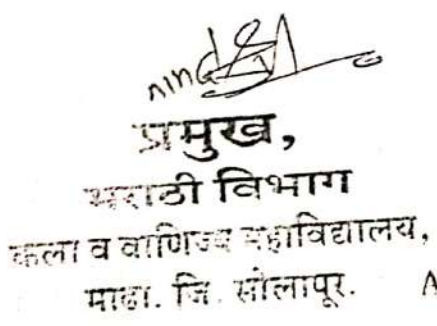 प्रमुख,
मराठी विभाग
कला व वाणिज्य महाविद्यालय,
माढा. जि. सोलापूर. A